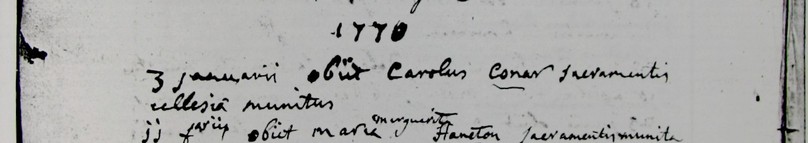 1770
3 januarii obiit Carolus Conar sacramentis
ecllesiã munitus
jj obiit maria marguerita Haneton sacramentis munita